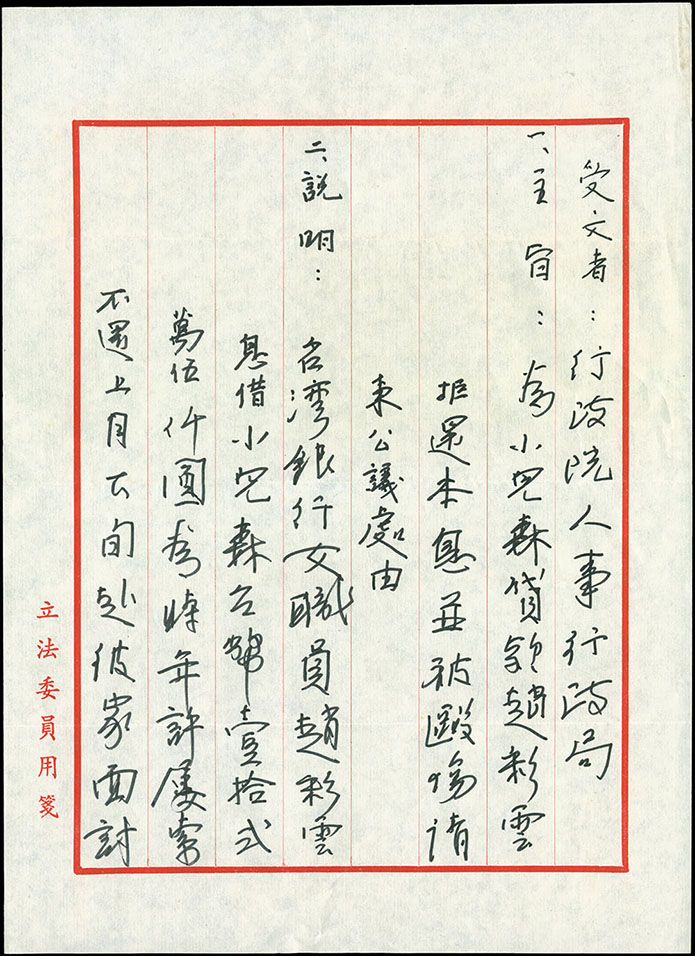 受文者：行政院人事行政局
一、主旨：為小兒森貸領趙彩雲
拒還本息並被毆傷請
秉公議處由
二、說明：
台灣銀行女職員趙彩雲
息借小兒森台幣壹拾弍
萬伍仟圓為時年許屢索
不還上月下旬赴彼家面討
立法委員用箋